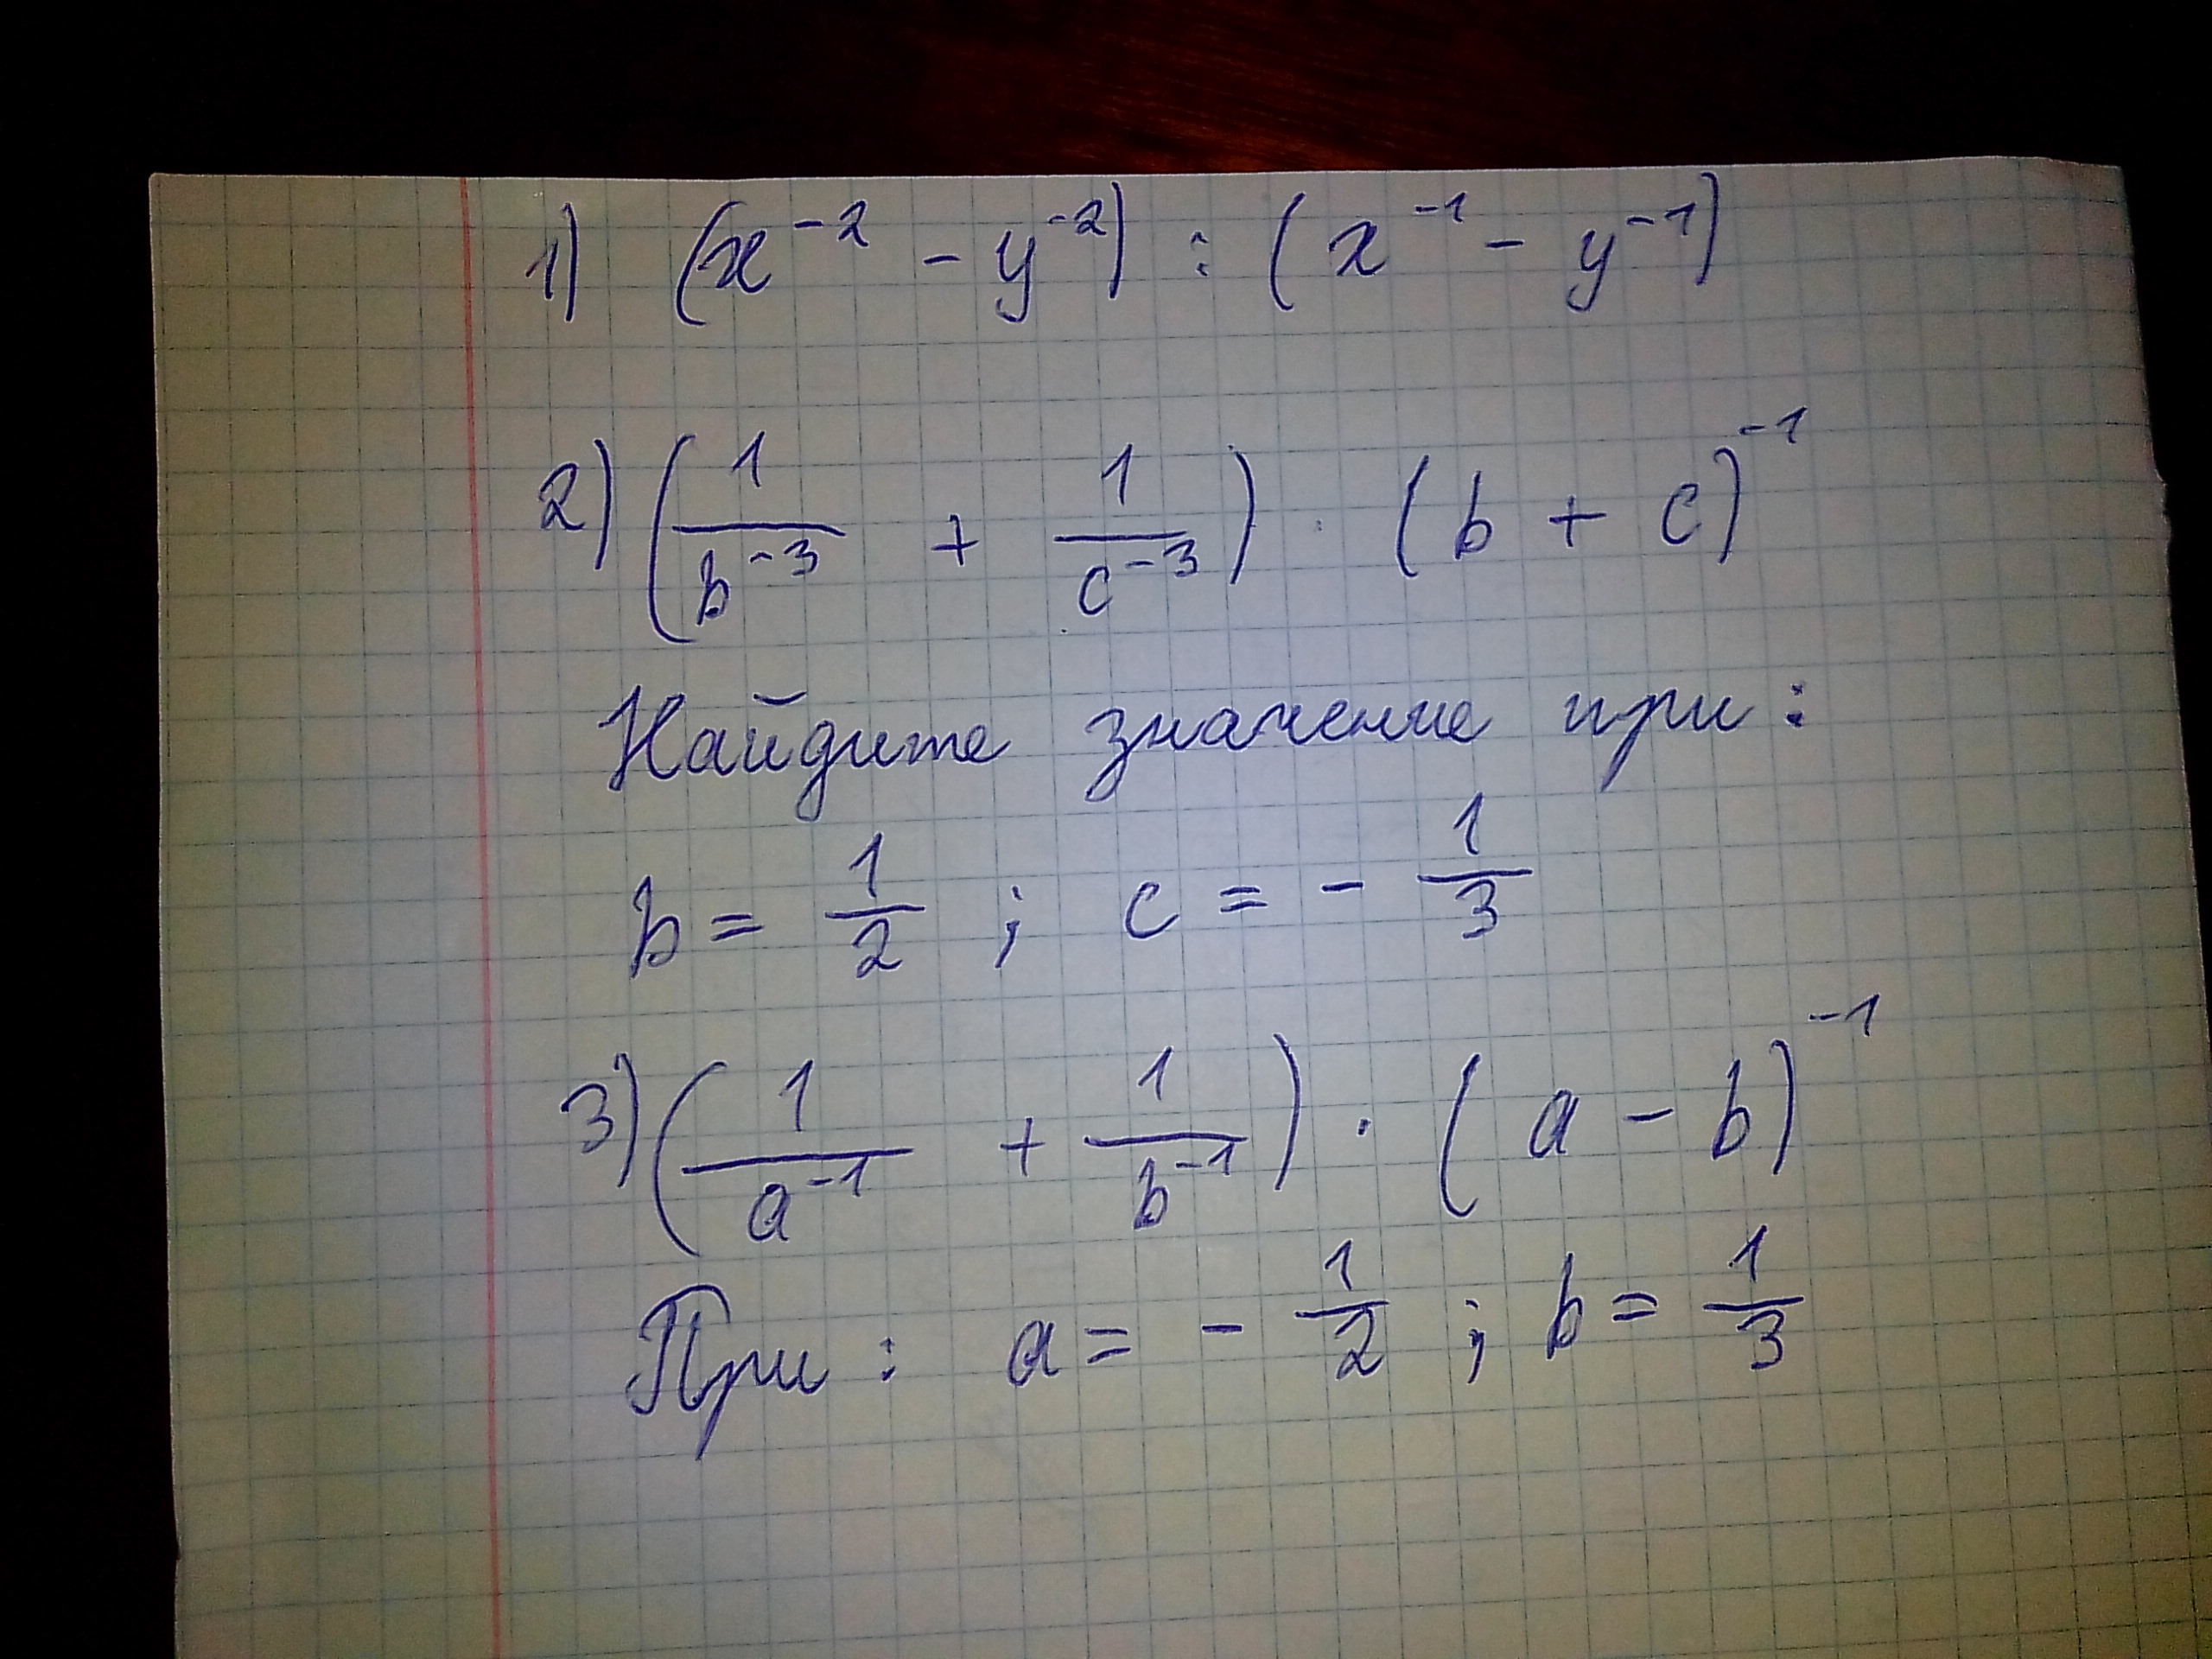 1) (x⁻² - y⁻²) : (x⁻¹ - y⁻¹)
2) (1/b⁻³ + 1/c⁻³) · (b + c)⁻¹
Найдите значение при:
b = 1/2 ; c = - 1/3
3) (1/a⁻¹ + 1/b⁻¹) · (a - b)⁻¹
При : a = - 1/2 ; b = 1/3